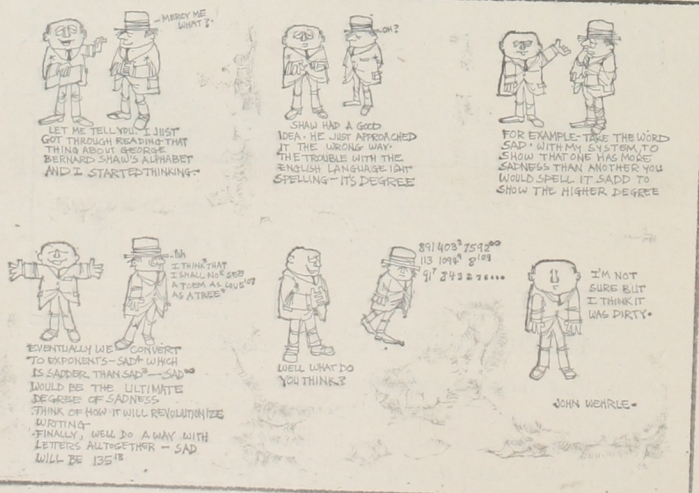 - MERCY ME
WHAT?
LET ME TELL YOU. I JUST
GOT THROUGH READING THAT
THING ABOUT GEORGE
BERNARD SHAW'S ALPHABET
AND I STARTED THINKING-
-OH?
SHAW HAD A GOOD
IDEA. HE JUST APPROACHED
IT THE WRONG WAY.
THE TROUBLE WITH THE
ENGLISH LANGUAGE ISNT
SPELLING - IT'S DEGREE
FOR EXAMPLE - TAKE THE WORD
SAD. WITH MY SYSTEM, TO
SHOW THAT ONE HAS MORE
SADNESS THAN ANOTHER YOU
WOULD SPELL IT SADD TO
SHOW THE HIGHER DEGREE
I THINK THAT
I SHALL NOT SEE
A POEM AS
AS A TREE
EVENTUALLY WE CONVERT
TO EXPONENTS - SAD⁴ WHICH
IS SADDER THAN SAD³ - SAD∞
WOULD BE THE ULTIMATE
DEGREE OF SADNESS
THINK OF HOW IT WILL REVOLUTIONIZE
WRITING -
FINALLY, WE'LL DO AWAY WITH
LETTERS ALLTOGETHER - SAD
WILL BE 135¹³
WELL WHAT DO
YOU THINK?
891 403² 7592⁰⁰
113
I'M NOT
SURE BUT
I THINK IT
WAS DIRTY.
JOHN WEHRLE-